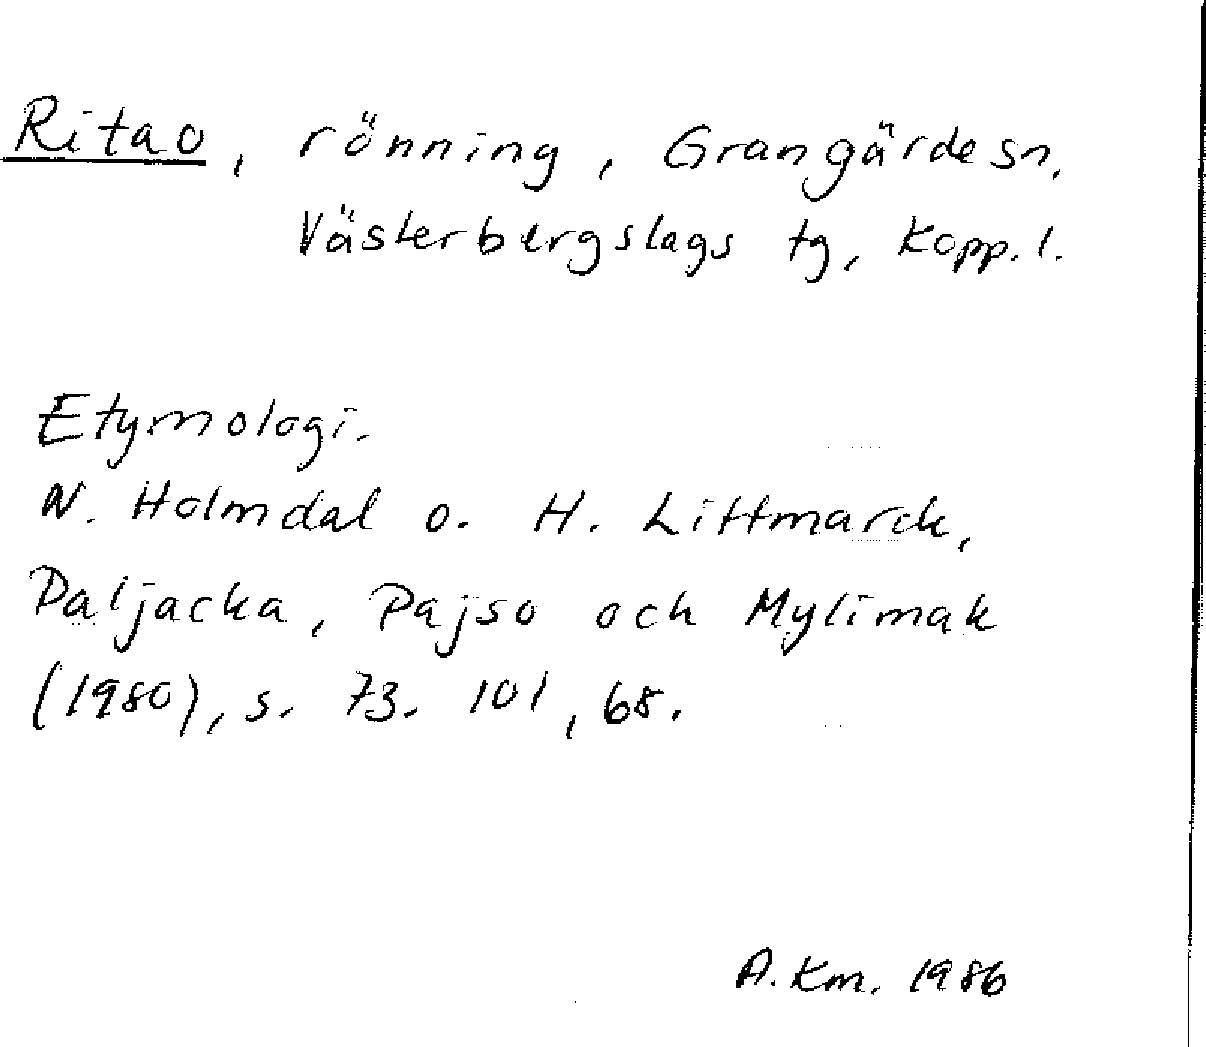 Ritao, rönning, Grangärde sn,
Västerbergslags tg, Kopp. l.
Etymologi.
N. Holmdal o. H. Littmarck,
Paljacka, Pajso och Mylimak
(1980), s. 73. 101, 68.
A. Km. 1986